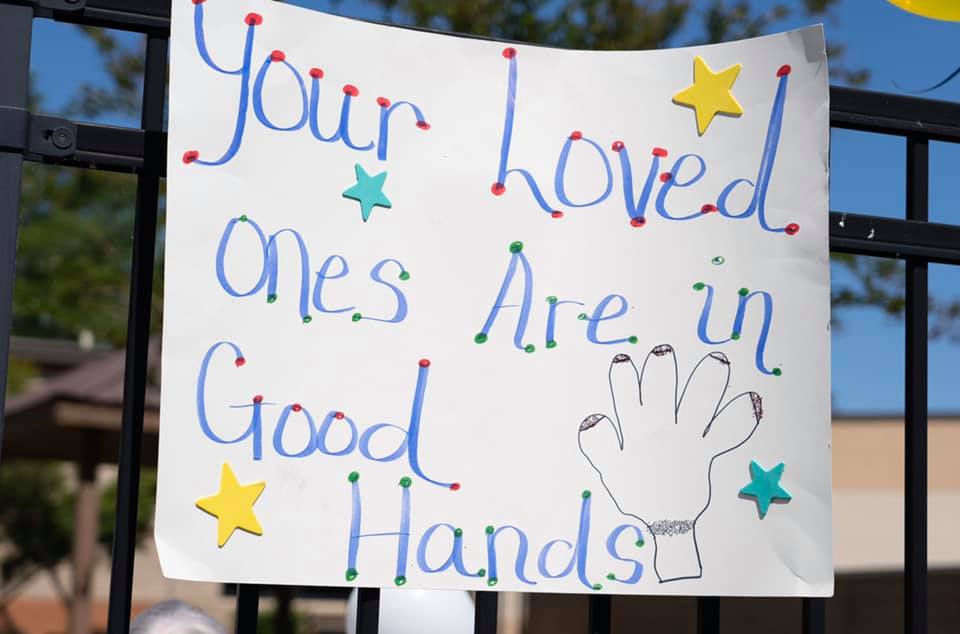 Your Loved
Ones Are in
Good
Hands